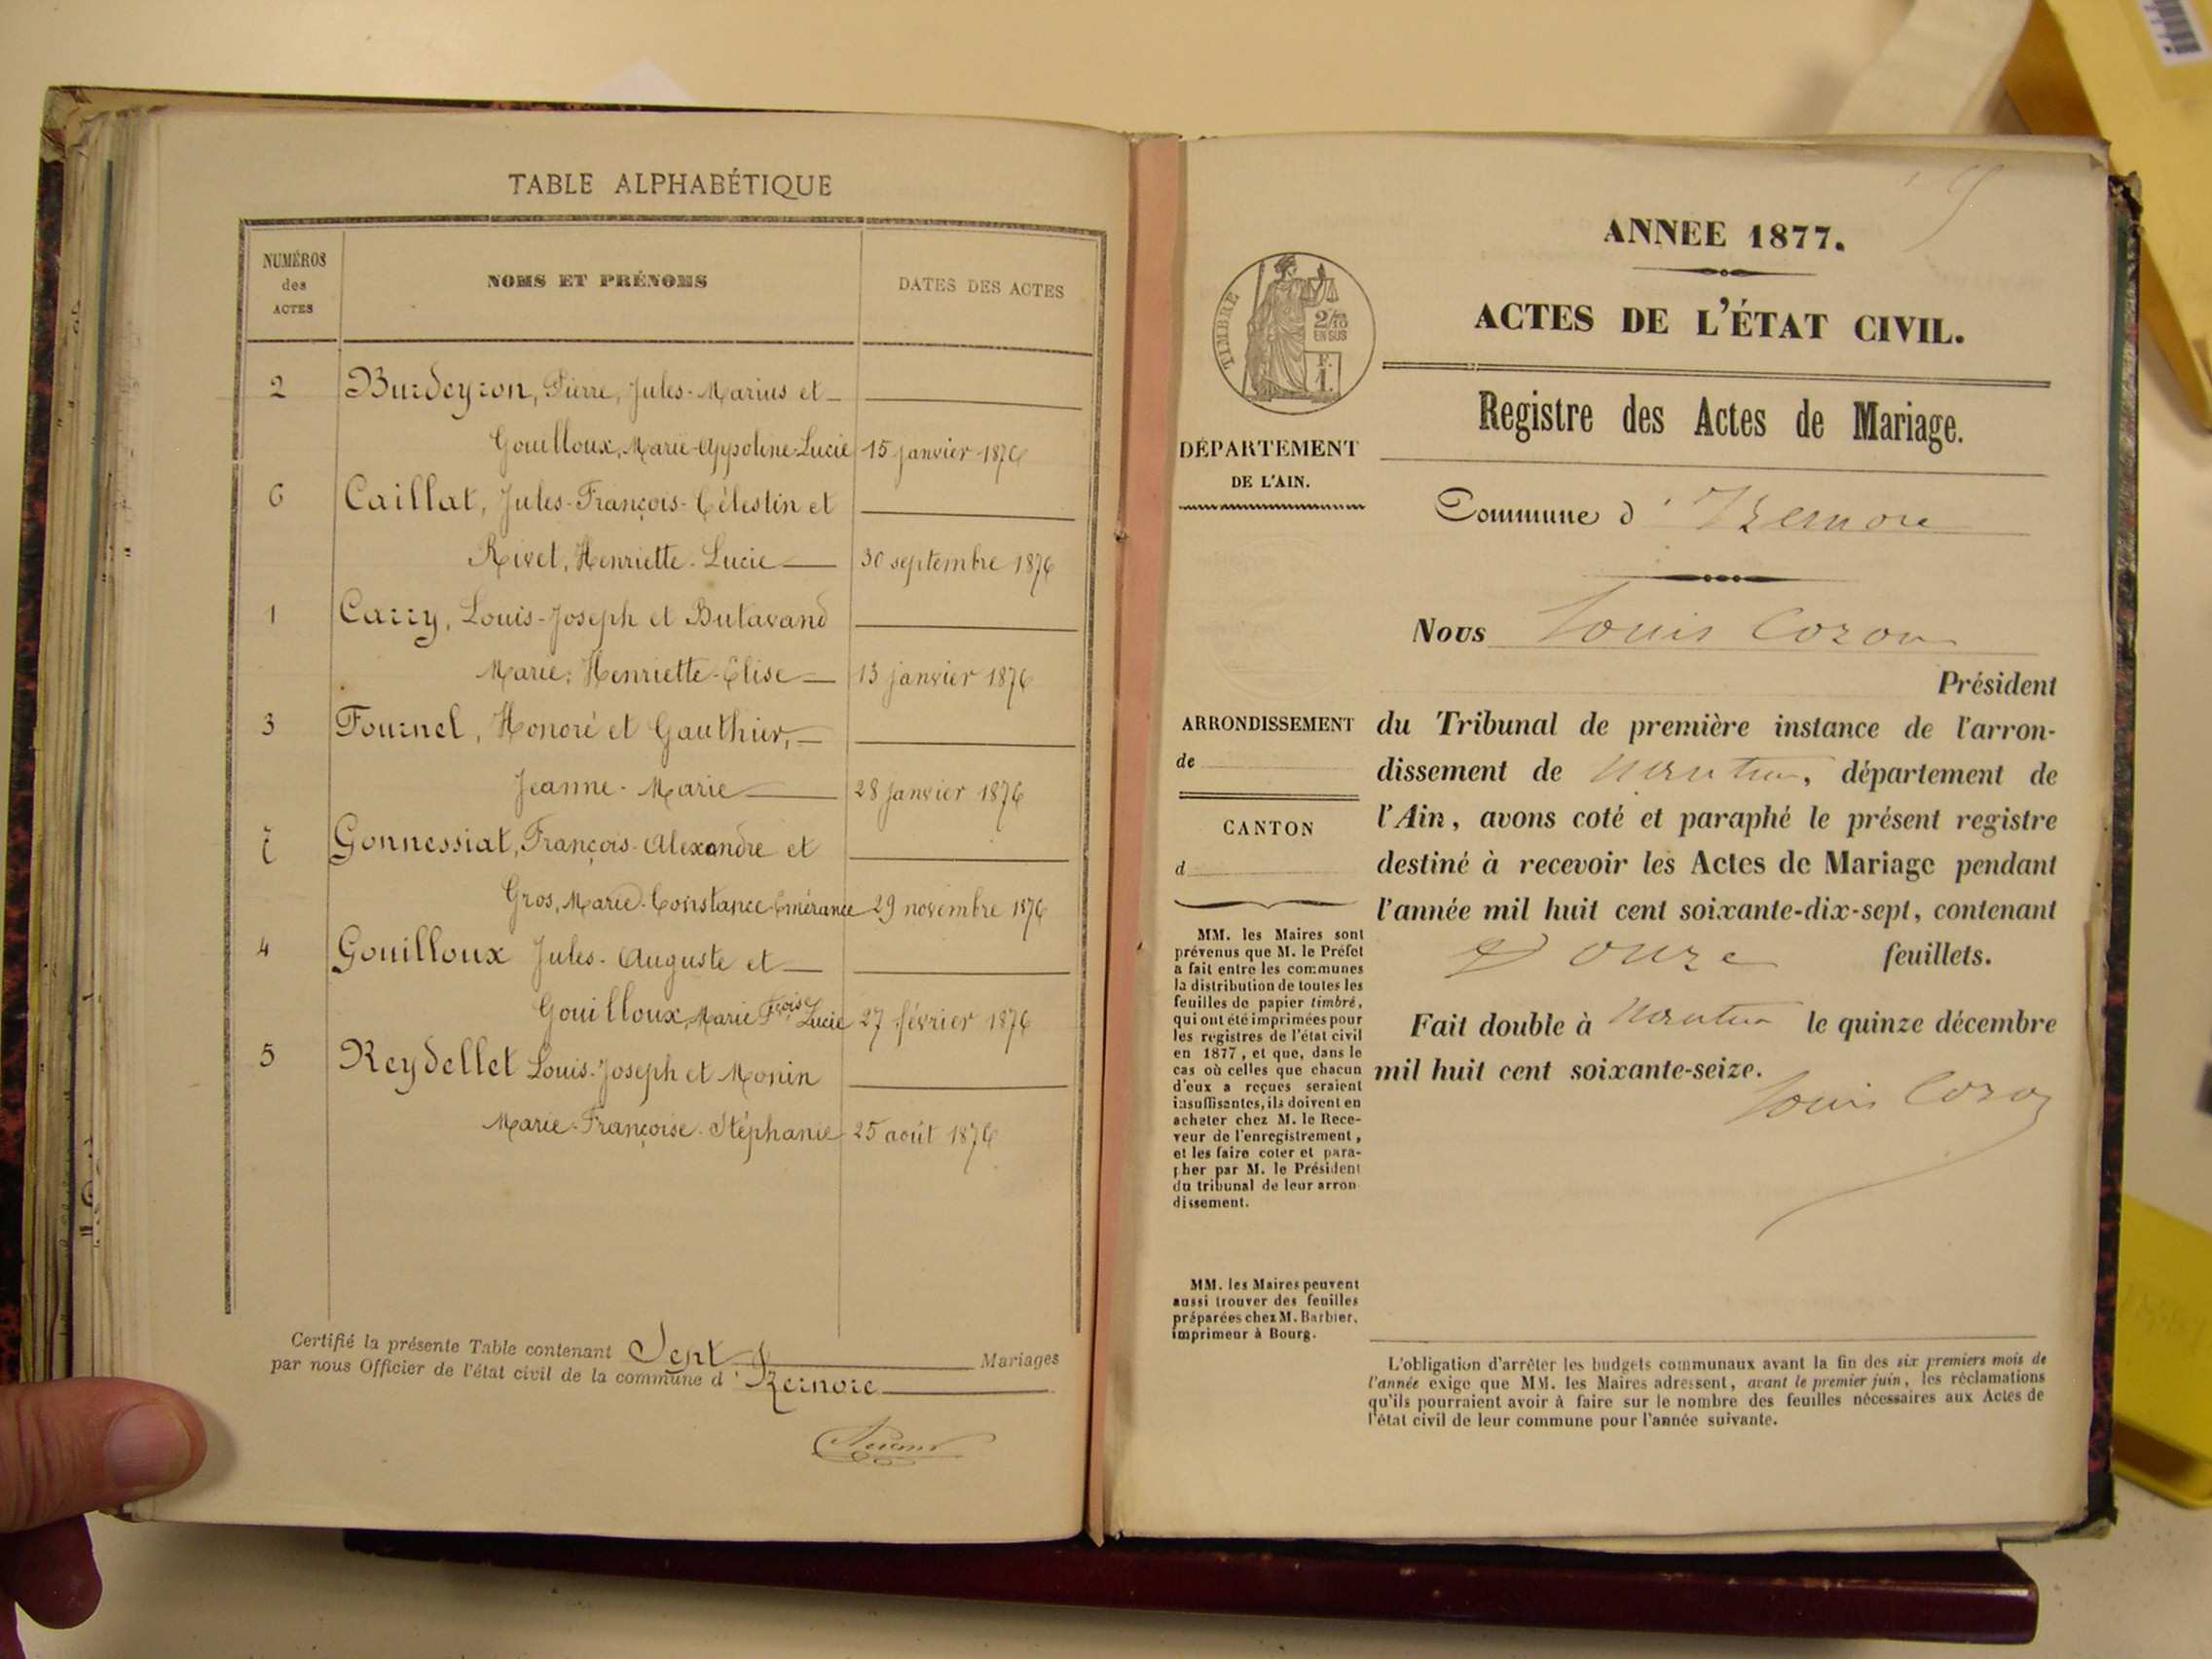 TABLE ALPHABÉTIQUE
NUMÉROS
des
ACTES
NOMS ET PRÉNOMS
DATES DES ACTES
2 Burdeyron, Pierre, Jules-Marius et
Gouilloux, Marie-Appoline-Lucie 15 janvier 1876
6 Caillat, Jules-François-Célestin et
Rivet, Henriette-Lucie 30 septembre 1876
1 Carry, Louis-Joseph et Butavand
Marie-Henriette-Elise 13 janvier 1876
3 Fournel, Honoré et Gauthier,
Jeanne-Marie 28 janvier 1876
7 Gonnessiat, François-Alexandre et
Gros, Marie-Constance-Emérance 29 novembre 1876
4 Gouilloux Jules-Auguste et
Gouilloux, Marie Fçoise Lucie 27 février 1876
5 Reydellet Louis-Joseph et Monin
Marie-Françoise-Stéphanie 25 août 1876
Certifié la présente Table contenant Sept Mariages
par nous Officier de l'état civil de la commune d'Izernore
ANNEE 1877.
ACTES DE L'ÉTAT CIVIL.
TIMBRE
2/10
EN SUS
F.
1.
Registre des Actes de Mariage.
DÉPARTEMENT
DE L'AIN.
Commune d'Izernore
Nous Louis Cozon
Président
ARRONDISSEMENT
de
CANTON
d
du Tribunal de première instance de l'arron-
dissement de Nantua, département de
l'Ain, avons coté et paraphé le présent registre
destiné à recevoir les Actes de Mariage pendant
l'année mil huit cent soixante-dix-sept, contenant
Douze feuillets.
Fait double à Nantua le quinze décembre
mil huit cent soixante-seize.
Louis Cozon
MM. les Maires sont
prévenus que M. le Préfet
a fait entre les communes
la distribution de toutes les
feuilles de papier timbré,
qui ont été imprimées pour
les registres de l'état civil
en 1877, et que, dans le
cas où celles que chacun
d'eux a reçues seraient
insuffisantes, ils doivent en
acheter chez M. le Rece-
veur de l'enregistrement,
et les faire coter et para-
pher par M. le Président
du tribunal de leur arron
dissement.
MM. les Maires peuvent
aussi trouver des feuilles
préparées chez M. Barbier,
imprimeur à Bourg.
L'obligation d'arrêter les budgets communaux avant la fin des six premiers mois de
l'année exige que MM. les Maires adressent, avant le premier juin, les réclamations
qu'ils pourraient avoir à faire sur le nombre des feuilles nécessaires aux Actes de
l'état civil de leur commune pour l'année suivante.